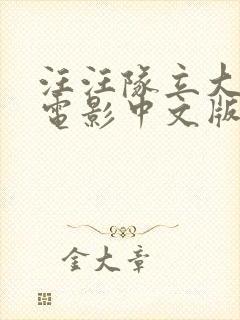 汪汪隊立大
電影中文版
金大章